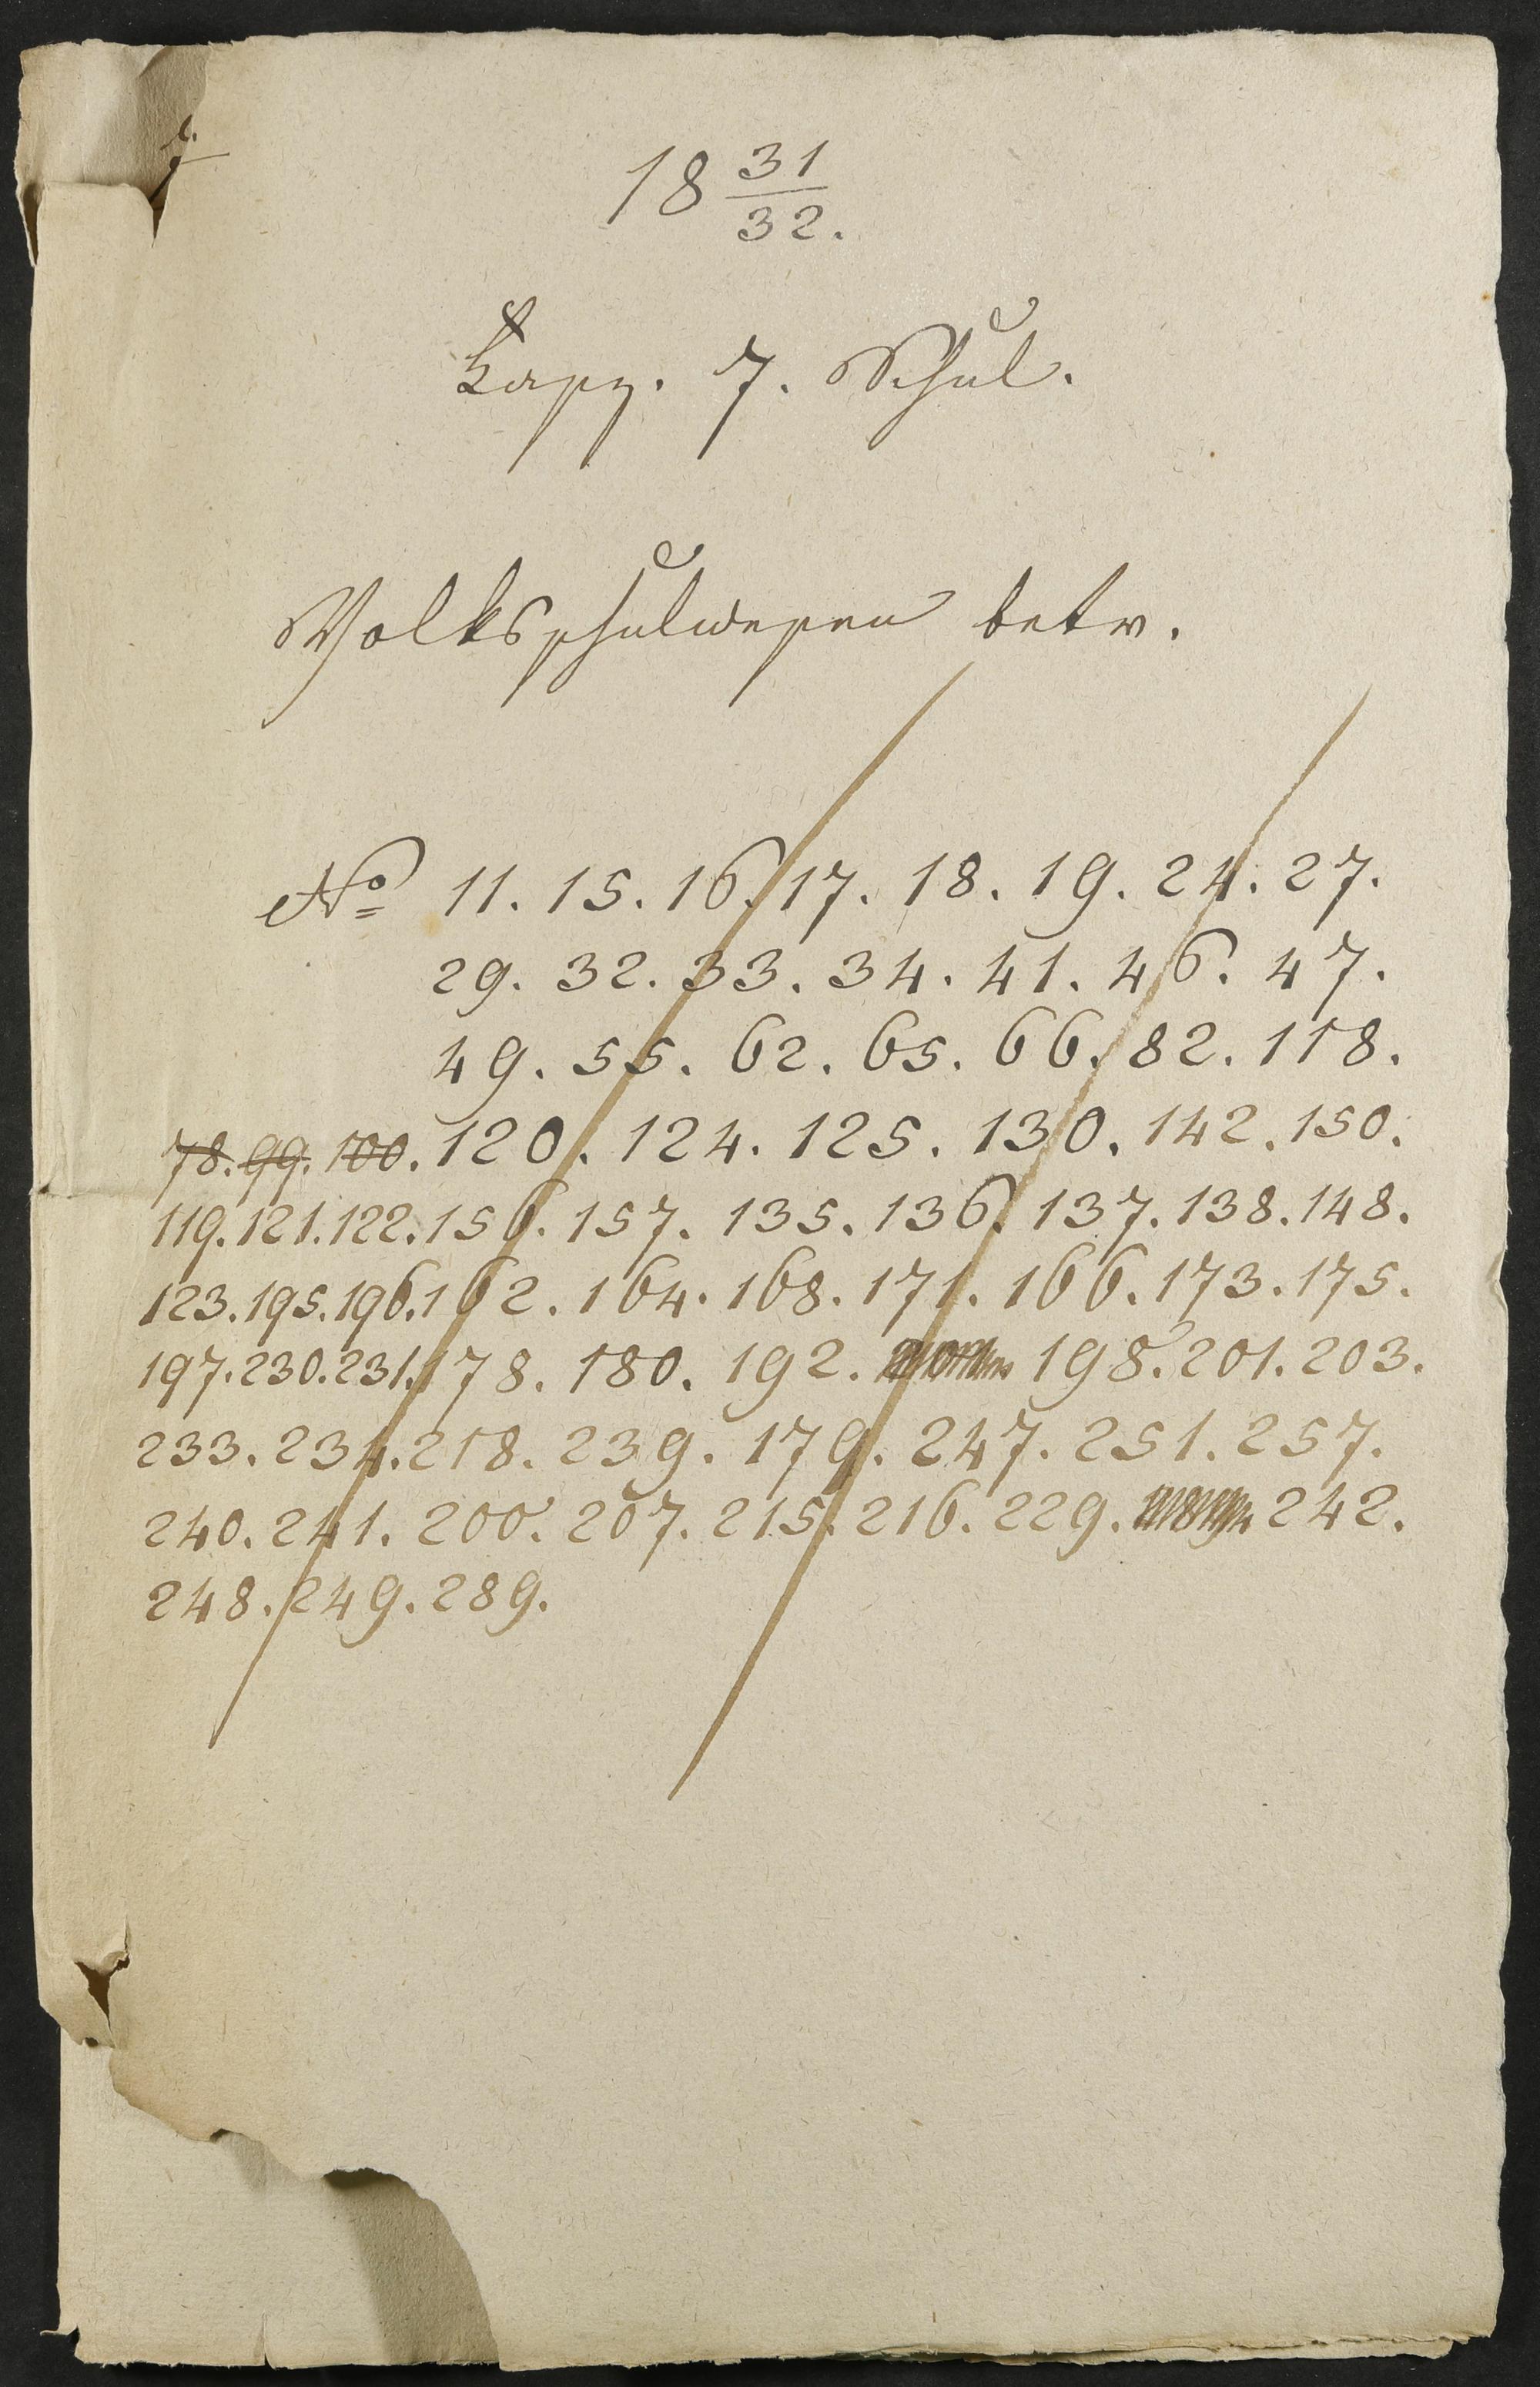 18 31/32.
Kapz. 7. Schul.
Volksschulwesen betr.
No 11. 15. 16. 17. 18. 19. 24. 27.
29. 32. 33. 34. 41. 46. 47.
49. 55. 62. 65. 66. 82. 118.
78. 99. 100. 120. 124. 125. 130. 142. 150.
119. 121. 122. 156. 157. 135. 136. 137. 138. 148.
123. 195. 196. 162. 164. 168. 171. 166. 173. 175.
197. 230. 231. 178. 180. 192. 198. 201. 203.
233. 234. 218. 239. 179. 247. 251. 257.
240. 241. 200. 207. 215. 216. 229. 242.
248. 249. 289.